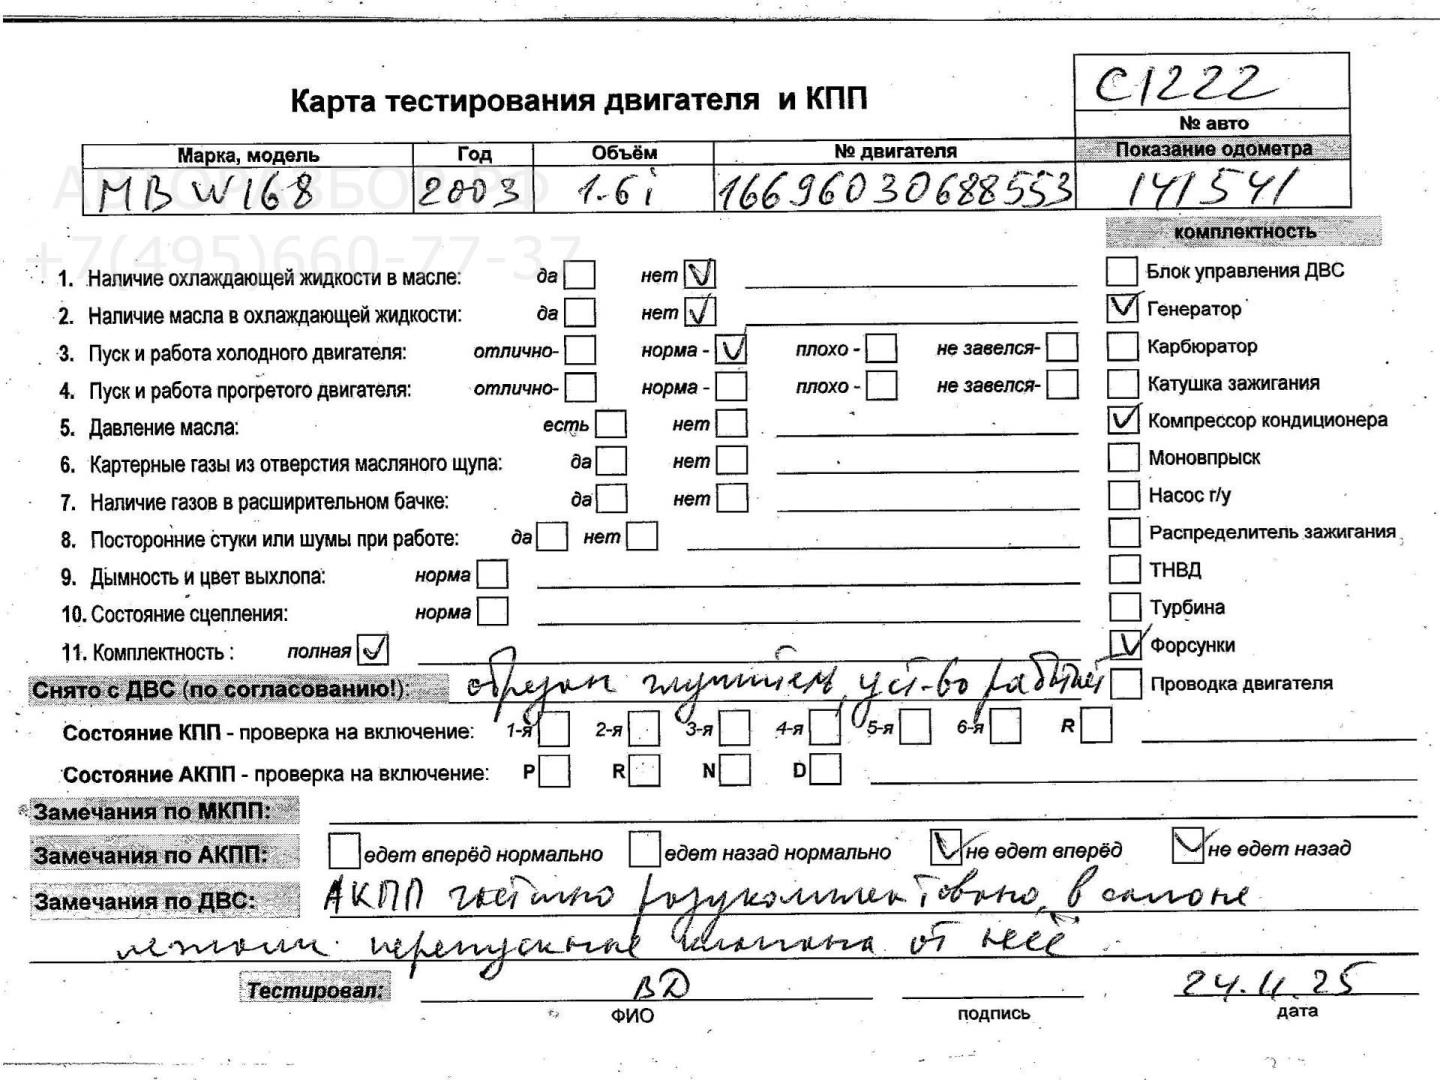 С1222
Карта тестирования двигателя и КПП
№ авто
Марка, модель Год Объём № двигателя Показание одометра
MB W168 2003 1.6i 16696030688553 141541
АВТОРАЗБОР.РФ
+7(495)660-77-37
комплектность
1. Наличие охлаждающей жидкости в масле: да нет Блок управления ДВС
2. Наличие масла в охлаждающей жидкости: да нет Генератор
3. Пуск и работа холодного двигателя: отлично- норма - плохо - не завелся- Карбюратор
4. Пуск и работа прогретого двигателя: отлично- норма - плохо - не завелся- Катушка зажигания
5. Давление масла: есть нет Компрессор кондиционера
6. Картерные газы из отверстия масляного щупа: да нет Моновпрыск
7. Наличие газов в расширительном бачке: да нет Насос г/у
8. Посторонние стуки или шумы при работе: да нет Распределитель зажигания
9. Дымность и цвет выхлопа: норма ТНВД
10. Состояние сцепления: норма Турбина
11. Комплектность : полная Форсунки
Снято с ДВС (по согласованию!): обрезан глушитель, уст-во работает Проводка двигателя
Состояние КПП - проверка на включение: 1-я 2-я 3-я 4-я 5-я 6-я R
Состояние АКПП - проверка на включение: P R N D
Замечания по МКПП:
Замечания по АКПП: едет вперёд нормально едет назад нормально не едет вперёд не едет назад
Замечания по ДВС: АКПП частично разукомплектована, в салоне
лежали перепускные клапана от неё
Тестировал: ВД 24.11.25
ФИО подпись дата